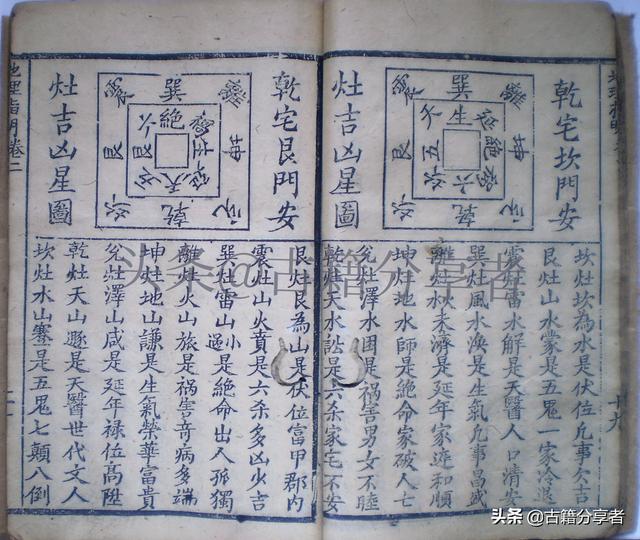 乾宅坎門安
灶吉凶星圖
巽
離
坤
乾
艮
生
絕
六
五
天
坎灶坎為水是伏位凡事欠吉
艮灶山水蒙是五鬼一家冷退
震灶雷水解是天醫人口清安
巽灶風水渙是生氣凡事昌盛
離灶火未濟是延年家和順
坤灶地水師是絕命家破人亡
兌灶澤水困是禍害男女不睦
乾灶天水訟是六杀家宅不安
十九
乾宅艮門安
灶吉凶星圖
巽
離
坤
乾
艮
絕
六
天
艮灶艮為山是伏位富甲郡內
震灶山火賁是六杀多凶火吉
巽灶雷山小過是絕命出入孤獨
離灶火山旅是禍害奇病多端
坤灶地山謙是生氣榮華富貴
兌灶澤山咸是延年祿位高陞
乾灶天山遯是天醫世代文人
坎灶水山蹇是五鬼七顛八倒
地理指明卷二
头条@古籍分享者
头条 @古籍分享者